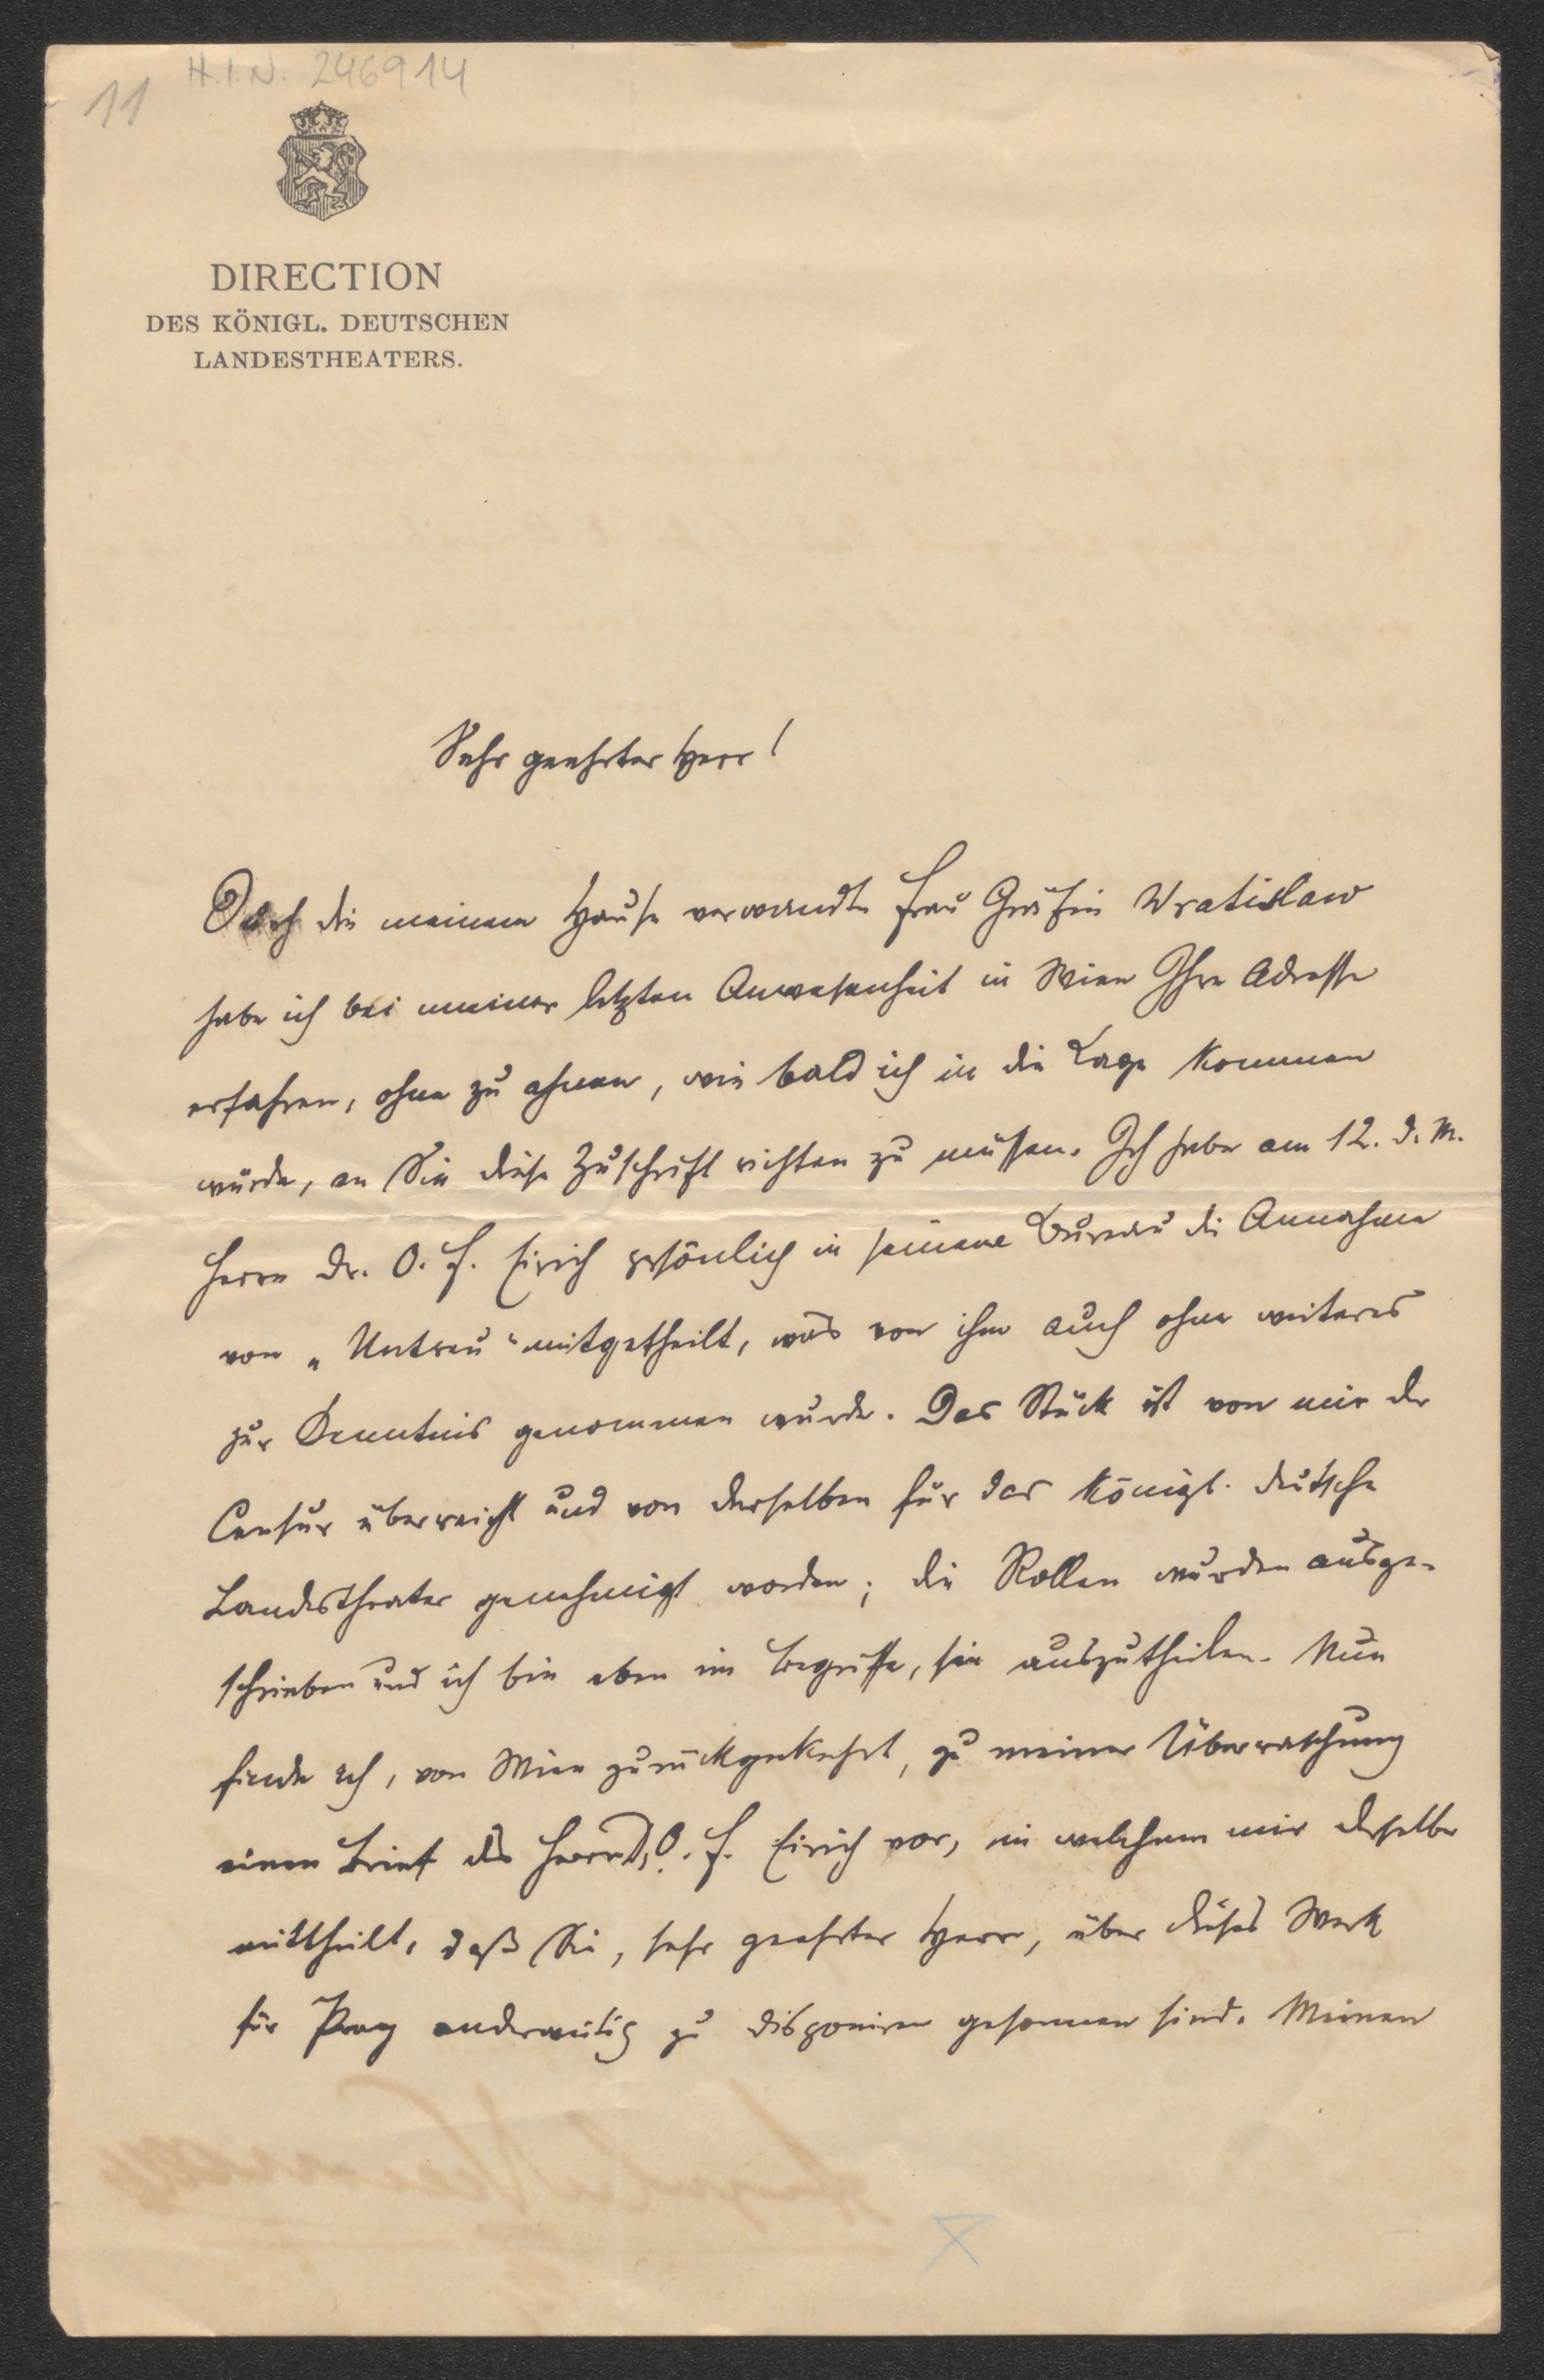 11 H.I.N. 246914
DIRECTION
DES KÖNIGL. DEUTSCHEN
LANDESTHEATERS.
Sehr geehrter Herr!
Durch die meinem Hause verwandte Frau Gräfin Wratislaw
habe ich bei meiner letzten Anwesenheit in Wien Ihre Adresse
erfahren, ohne zu ahnen, wie bald ich in die Lage kommen
würde, an Sie diese Zuschrift richten zu müssen. Ich habe am 12. d. M.
Herrn Dr. O. F. Eirich persönlich in seinem Bureau die Annahme
von „Untreu" mitgetheilt, was von ihm auch ohne weiteres
zur Kenntnis genommen wurde. Das Stück ist von mir der
Censur überreicht und von derselben für das königl. deutsche
Landestheater genehmigt worden; die Rollen wurden ausge-
schrieben und ich bin eben im Begriffe, sie auszutheilen. Nun
finde ich, von Wien zurückgekehrt, zu meiner Überraschung
einen Brief des Herrn Dr. O. F. Eirich vor, in welchem mir derselbe
mittheilt, daß Sie, sehr geehrter Herr, über dieses Werk
für Prag anderweitig zu disponiren gesonnen sind. Meinen